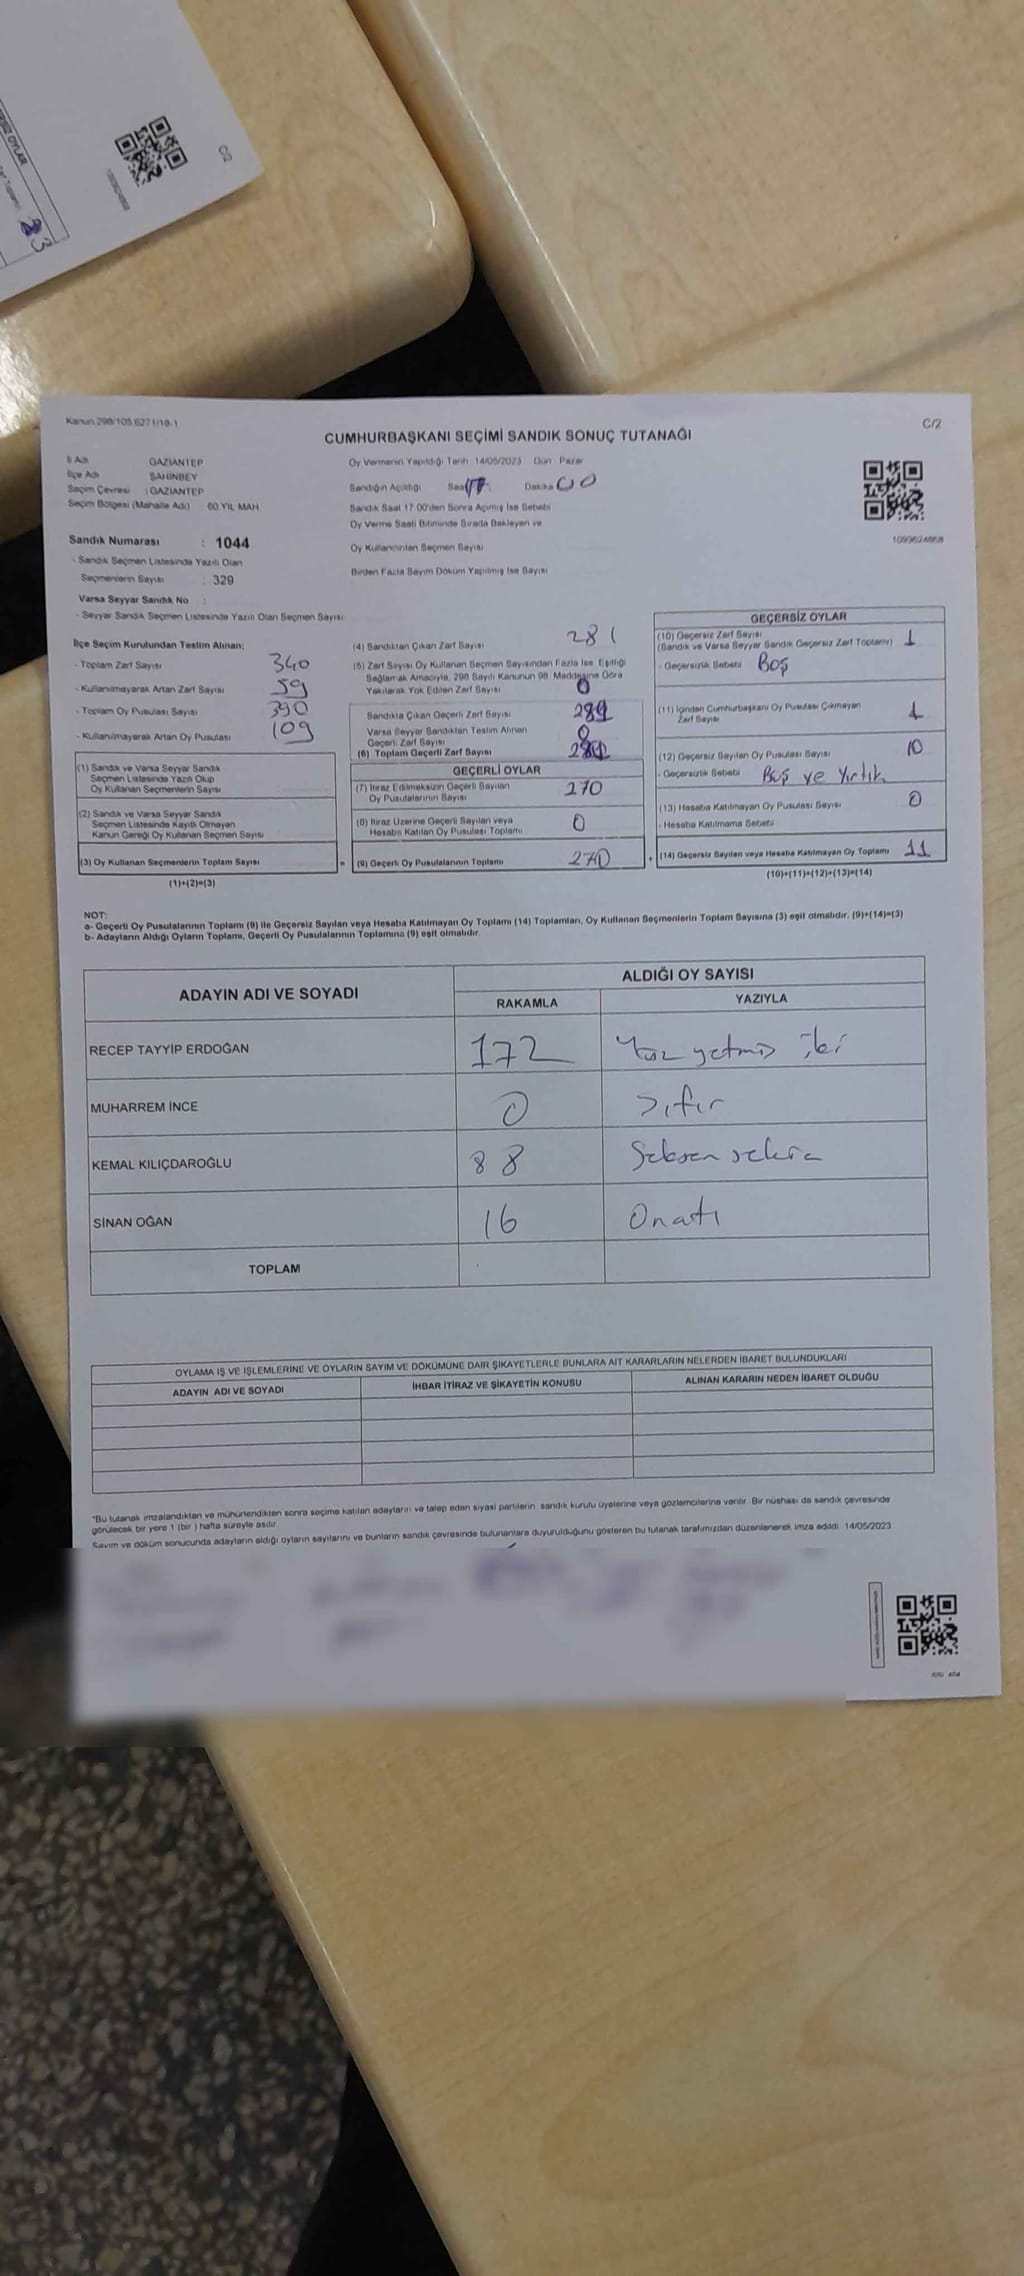 C/2
23
Kanun.298/105.6271/18-1
C/2
CUMHURBAŞKANI SEÇİMİ SANDIK SONUÇ TUTANAĞI
İl Adı GAZİANTEP
İlçe Adı ŞAHİNBEY
Seçim Çevresi : GAZİANTEP
Seçim Bölgesi (Mahalle Adı) 60.YIL MAH.
Oy Vermenin Yapıldığı Tarih 14/05/2023 Gün Pazar
Sandığın Açıldığı Saat 17 Dakika 00
Sandık Saat 17 00'den Sonra Açımış İse Sebebi
Oy Verme Saati Bitiminde Sırada Bekleyen ve
Oy Kullandırılan Seçmen Sayısı
Birden Fazla Sayım Döküm Yapılmış İse Sayısı
Sandık Numarası : 1044
- Sandık Seçmen Listesinde Yazılı Olan
Seçmenlerin Sayısı : 329
Varsa Seyyar Sandık No :
- Seyyar Sandık Seçmen Listesinde Yazılı Olan Seçmen Sayısı:
İlçe Seçim Kurulundan Teslim Alınan;
- Toplam Zarf Sayısı 340
- Kullanılmayarak Artan Zarf Sayısı 59
- Toplam Oy Pusulası Sayısı 390
- Kullanılmayarak Artan Oy Pusulası 109
(1) Sandık ve Varsa Seyyar Sandık
Seçmen Listesinde Yazılı Olup
Oy Kullanan Seçmenlerin Sayısı
(2) Sandık ve Varsa Seyyar Sandık
Seçmen Listesinde Kayıtlı Olmayan
Kanun Gereği Oy Kullanan Seçmen Sayısı
(3) Oy Kullanan Seçmenlerin Toplam Sayısı =
(1)+(2)=(3)
(4) Sandıktan Çıkan Zarf Sayısı 281
(5) Zarf Sayısı Oy Kullanan Seçmen Sayısından Fazla İse Eşitliği
Sağlamak Amacıyla, 298 Sayılı Kanunun 98. Maddesine Göre
Yakılarak Yok Edilen Zarf Sayısı 0
Sandıkta Çıkan Geçerli Zarf Sayısı
Varsa Seyyar Sandıktan Teslim Alınan
Geçerli Zarf Sayısı 0
(6) Toplam Geçerli Zarf Sayısı
GEÇERLİ OYLAR
(7) İtiraz Edilmeksizin Geçerli Sayılan
Oy Pusulalarının Sayısı 270
(8) İtiraz Üzerine Geçerli Sayılan veya
Hesaba Katılan Oy Pusulası Toplamı 0
(9) Geçerli Oy Pusulalarının Toplamı 270 +
GEÇERSİZ OYLAR
(10) Geçersiz Zarf Sayısı
(Sandık ve Varsa Seyyar Sandık Geçersiz Zarf Toplamı) 1
- Geçersizlik Sebebi Boş
(11) İçinden Cumhurbaşkanı Oy Pusulası Çıkmayan
Zarf Sayısı 1
(12) Geçersiz Sayılan Oy Pusulası Sayısı 10
- Geçersizlik Sebebi Boş ve Yırtık
(13) Hesaba Katılmayan Oy Pusulası Sayısı 0
- Hesaba Katılmama Sebebi
(14) Geçersiz Sayılan veya Hesaba Katılmayan Oy Toplamı 11
(10)+(11)+(12)+(13)=(14)
NOT:
a- Geçerli Oy Pusulalarının Toplamı (9) ile Geçersiz Sayılan veya Hesaba Katılmayan Oy Toplamı (14) Toplamları, Oy Kullanan Seçmenlerin Toplam Sayısına (3) eşit olmalıdır. (9)+(14)=(3)
b- Adayların Aldığı Oyların Toplamı, Geçerli Oy Pusulalarının Toplamına (9) eşit olmalıdır.
ADAYIN ADI VE SOYADI
ALDIĞI OY SAYISI
RAKAMLA YAZIYLA
RECEP TAYYİP ERDOĞAN 172 Yüz yetmiş iki
MUHARREM İNCE 0 Sıfır
KEMAL KILIÇDAROĞLU 88 Seksen sekiz
SİNAN OĞAN 16 Onaltı
TOPLAM
OYLAMA İŞ VE İŞLEMLERİNE VE OYLARIN SAYIM VE DÖKÜMÜNE DAİR ŞİKAYETLERLE BUNLARA AİT KARARLARIN NELERDEN İBARET BULUNDUKLARI
ADAYIN ADI VE SOYADI İHBAR İTİRAZ VE ŞİKAYETİN KONUSU ALINAN KARARIN NEDEN İBARET OLDUĞU
*Bu tutanak imzalandıktan ve mühürlendikten sonra seçime katılan adayların ve talep eden siyasi partilerin sandık kurulu üyelerine veya gözlemcilerine verilir. Bir nüshası da sandık çevresinde
görülecek bir yere 1 (bir ) hafta süreyle asılır.
Sayım ve döküm sonucunda adayların aldığı oyların sayılarını ve bunların sandık çevresinde bulunanlara duyurulduğunu gösteren bu tutanak tarafımızdan düzenlenerek imza edildi. 14/05/2023